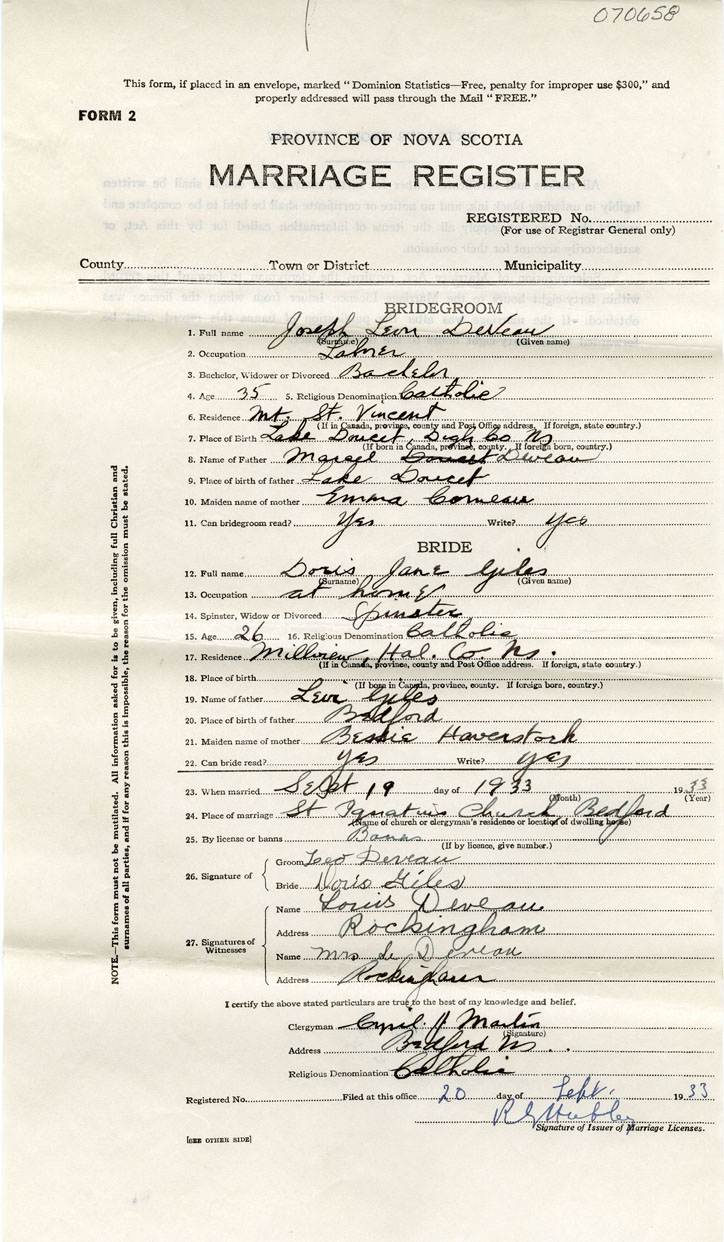 070658
This form, if placed in an envelope, marked "Dominion Statistics—Free, penalty for improper use $300," and
properly addressed will pass through the Mail "FREE."
FORM 2
PROVINCE OF NOVA SCOTIA
MARRIAGE REGISTER
REGISTERED No.
(For use of Registrar General only)
County Town or District Municipality
BRIDEGROOM
1. Full name Joseph Leon Deveau
(Surname) (Given name)
2. Occupation Labrer
3. Bachelor, Widower or Divorced Bachelor
4. Age 35 5. Religious Denomination Catholic
6. Residence Mt. St. Vincent
(If in Canada, province, county and Post Office address. If foreign, state country.)
7. Place of Birth Lake Doucet, Digh Co NS
(If born in Canada, province, county. If foreign born, country.)
8. Name of Father Marcel Doucet Deveau
9. Place of birth of father Lake Doucet
10. Maiden name of mother Emma Comeau
11. Can bridegroom read? Yes Write? yes
BRIDE
12. Full name Doris Jane Giles
(Surname) (Given name)
13. Occupation at home
14. Spinster, Widow or Divorced Spinster
15. Age 26 16. Religious Denomination Catholic
17. Residence Millview, Hal. Co NS.
(If in Canada, province, county and Post Office address. If foreign, state country.)
18. Place of birth
(If born in Canada, province, county. If foreign born, country.)
19. Name of father Levi Giles
20. Place of birth of father Bedford
21. Maiden name of mother Bessie Haverstock
22. Can bride read? yes Write? yes
23. When married Sept 19 day of 1933 1933
(Month) (Year)
24. Place of marriage St Ignatius Church Bedford
(Name of church or clergyman's residence or location of dwelling house)
25. By license or banns Banns
(If by licence, give number.)
26. Signature of Groom Leo Deveau
Bride Doris Giles
27. Signatures of Witnesses Name Louis Deveau
Address Rockingham
Name Mrs L Deveau
Address Rockingham
I certify the above stated particulars are true to the best of my knowledge and belief.
Clergyman Cyril J Martin
(Signature)
Address Bedford NS.
Religious Denomination Catholic
Registered No. Filed at this office 20 day of Sept. 1933
Signature of Issuer of Marriage Licenses.
[SEE OTHER SIDE]
NOTE.—This form must not be mutilated. All information asked for is to be given, including full Christian and
surnames of all parties, and if for any reason this is impossible, the reason for the omission must be stated.